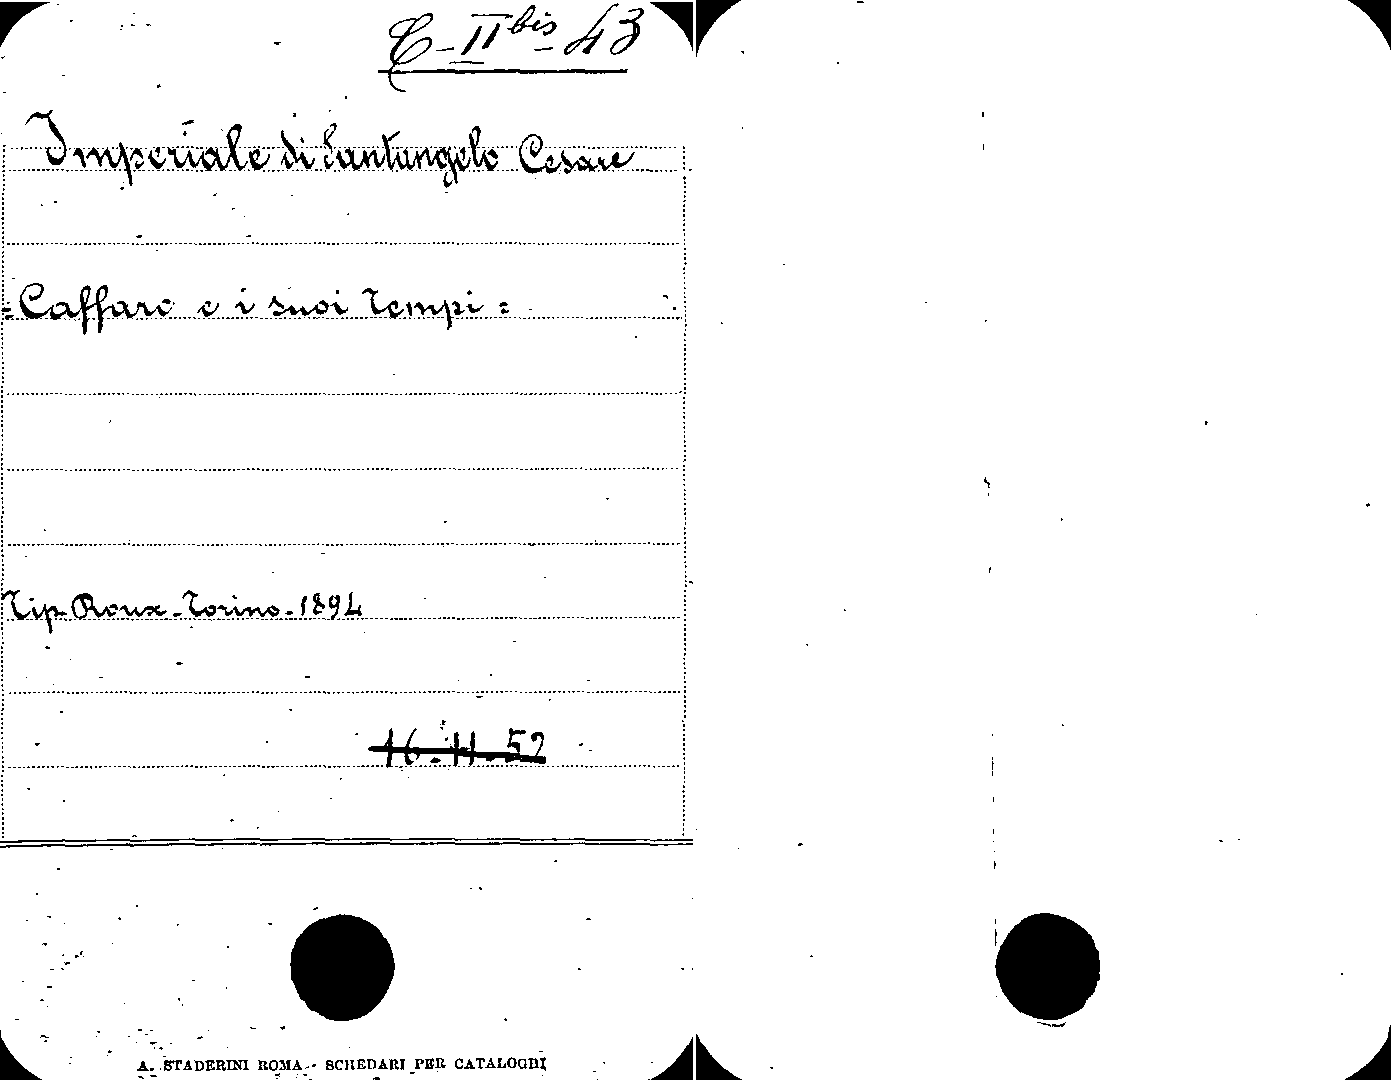 C-II bis-43
Imperiale di Santangelo Cesare
=Caffaro e i suoi tempi=
Tip. Roux - Torino - 1894
16-11-52
A. STADERINI ROMA - SCHEDARI PER CATALOGHI